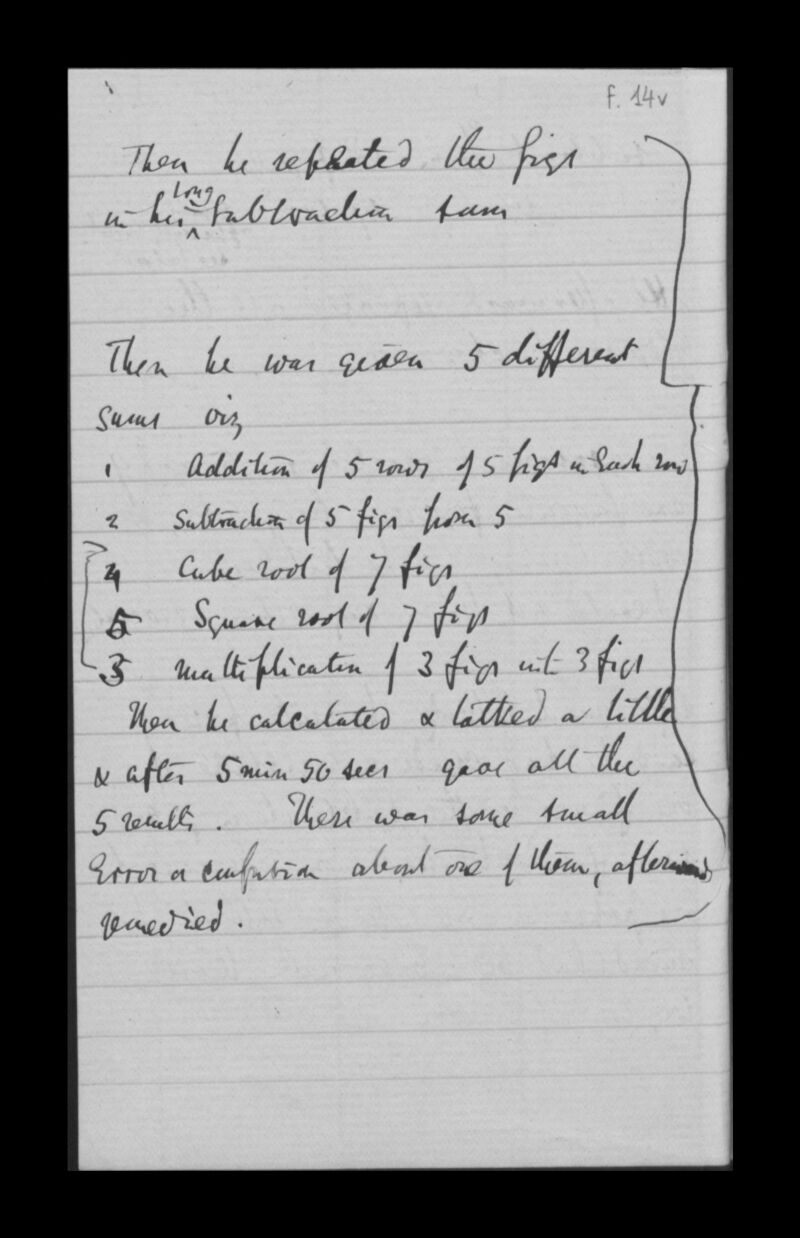 f. 14v
Then he repeated the figs
in his long subtraction sum
Then he was given 5 different
sums viz
1 Addition of 5 rows of 5 figs in each row
2 Subtraction of 5 figs from 5
4 Cube root of 7 figs
5 Square root of 7 figs
3 multiplication of 3 figs into 3 figs
Then he calculated & talked a little
& after 5 min 50 secs gave all the
5 results. There was some small
Error or confusion about one of them, afterwards
remedied.